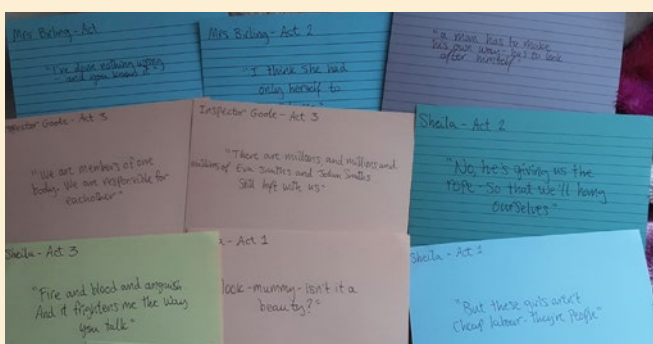 Mrs Birling - Act
"I've done nothing wrong
- and you know it"
Mrs Birling - Act 2
"I think she had
only herself to
"a man has to make
his own way - has to look
after himself"
Goole - Act 3
"We are members of one
body. We are responsible for
eachother"
Inspector Goole - Act 3
"There are millions, and millions and
millions of Eva Smiths and John Smiths
Still left with us"
Sheila - Act 2
"No, he's giving us the
rope - so that we'll hang
ourselves"
Sheila - Act 3
"Fire and blood and anguish.
And it frightens me the way
you talk"
- Act 1
look - mummy - isn't it a
beauty?"
Sheila - Act 1
"But these girls aren't
cheap labour - they're people"